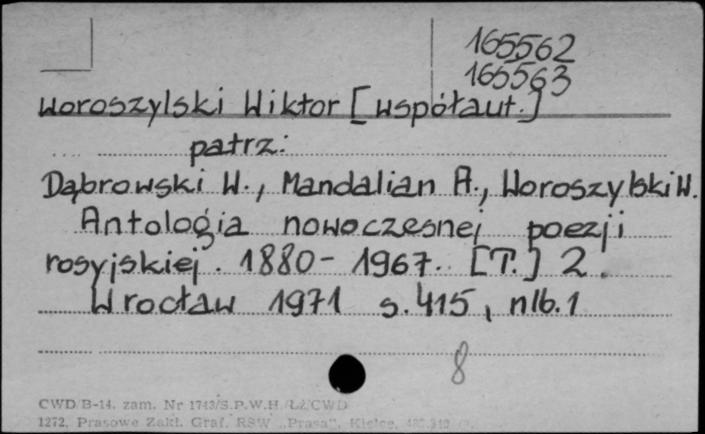 165562
165563
Woroszylski Wiktor [współaut.]
patrz:
Dąbrowski W., Mandalian A., Woroszylski W.
Antologia nowoczesnej poezji
rosyjskiej. 1880 - 1967. [T.] 2.
Wrocław 1971 s. 415, nlb. 1
8
CWD/B-14. zam. Nr 1743/S.P.W.H./ŁŻ/CWD
1272, Prasowe Zakł. Graf. RSW „Prasa", Kielce,